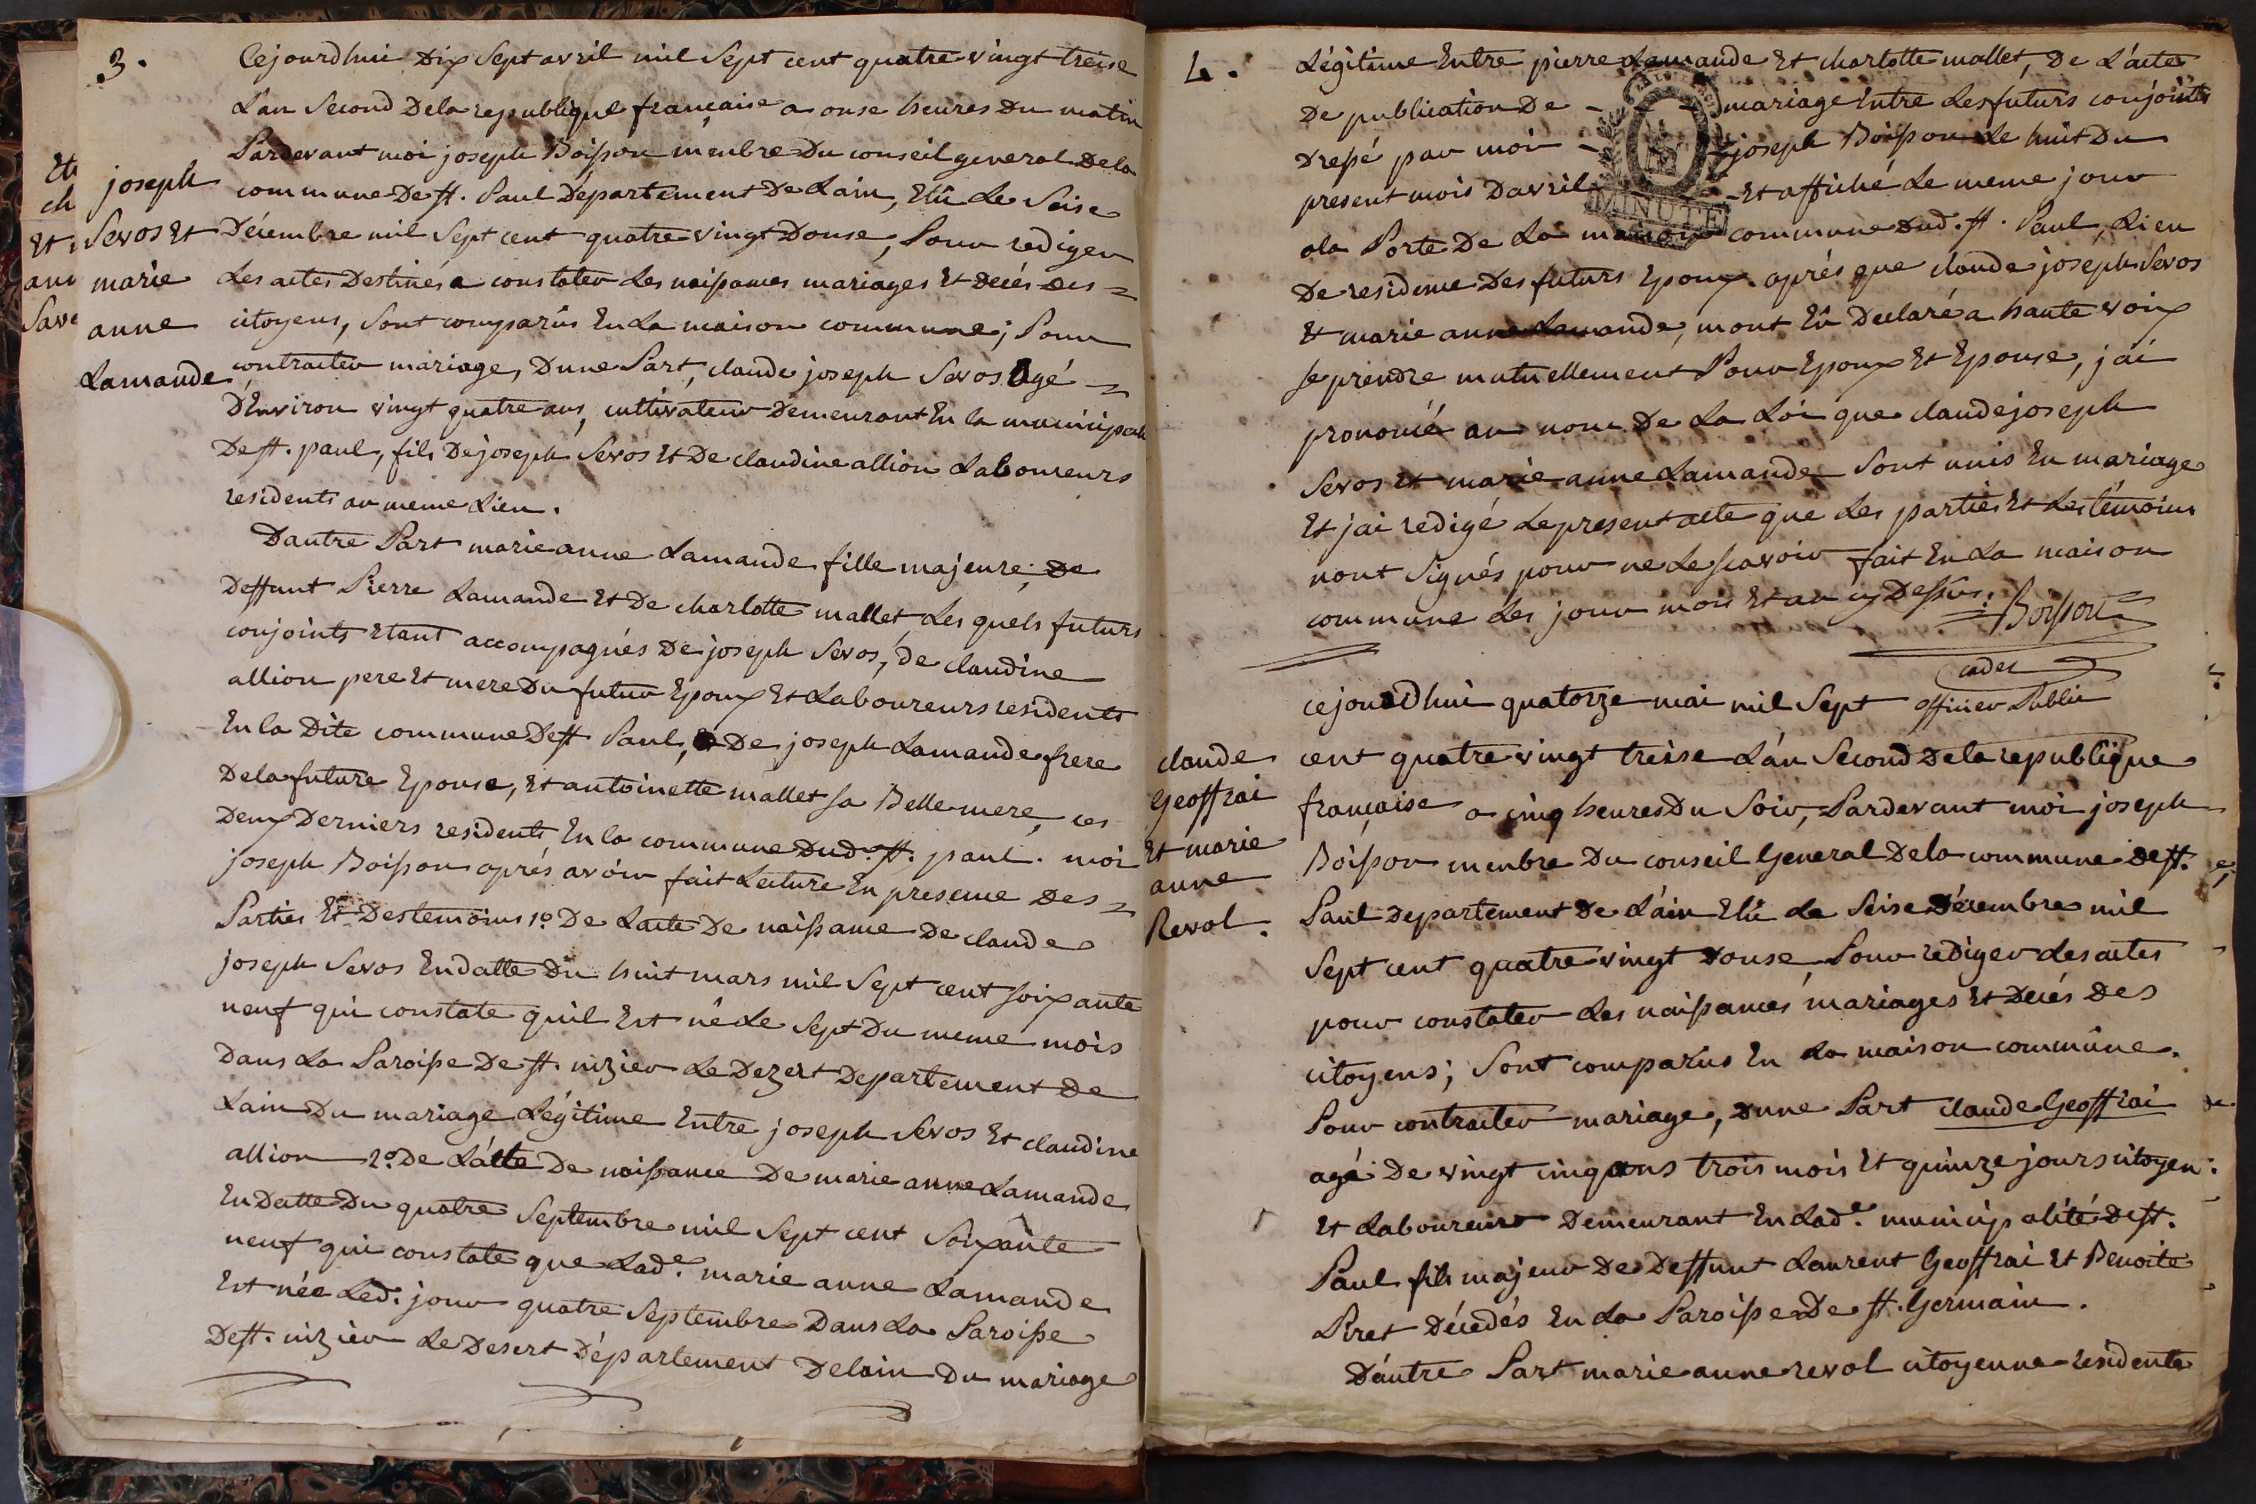 3.
Cejourdhui Dix Sept avril mil Sept cent quatre vingt treise
L'an Second De la republique française a onse heures Du matin
Pardevant moi joseph Boisson menbre Du conseil general De la
commune De st. Paul Departement De Lain, Elû Le Seise
Décembre mil Sept cent quatre vingt Douse, Pour rediger
Les actes Destinés a constater Les naissances mariages Et Décés des =
citoyens, Sont comparûs En La maison commune; Pour
contracter mariage, Dune Part, claude joseph Sevos Agé =
D'Environ vingt quatre ans, cultivateur Demeurant En la municipali
De st. paul, fils De joseph Sevos Et De claudine allion Laboureurs
residents au meme Lieu.
Dautre Part marie anne Lamande fille majeure, De
Deffunt Pierre Lamande Et De charlotte mallet Les quels futurs
conjoints Etant accompagnés De joseph Sevos, De claudine
allion pere Et mere Du futur Epoux Et Laboureurs residents
En la Dite commune De st Paul, De joseph Lamande frere
De la future Epouse, Et antoinette mallet sa Belle mere, ces
Deux Derniers residents En la commune Dud. st. paul. moi
joseph Boisson aprés avoir fait Lecture En presence Des =
Parties Et Des temoins 1o. De Lacte De naissance De claude
joseph Sevos En datte Du huit mars mil Sept cent soixante
neuf qui constate quil Est né Le Sept Du meme mois
Dans La Paroisse De st. nizier Le Dezert Departement De
Lain Du mariage Légitime Entre joseph Sevos Et claudine
allion 2o. De L'acte De naissance De marie anne Lamande
En Datte Du quatre Septembre mil Sept cent Soixante
neuf qui constate que Lade. marie anne Lamande
Est née Led. jour quatre Septembre Dans La Paroisse
De st. nizier Le Desert Département De lain Du mariage
joseph
Sevos Et
marie
anne
Lamande
Et
ch
Et
ann
Save
4.
Légitime Entre pierre Lamande Et charlotte mallet, De L'acte
De publication De - - mariage Entre Les futurs conjoints
Dressé par moi - - joseph Boisson Le huit Du
present mois Davril - Et affiché Le meme jour
a la Porte De La maison commune Dud. st. Paul, Lieu
De residence Des futurs Epoux. aprés que claude joseph Sevos
Et marie anne Lamande, mont Eû Declaré a haute voix
se prendre mutuellement Pour Epoux Et Epouse, j'ai
prononcé au nom De La Loi que claude joseph
Sevos Et marie anne Lamande Sont unis En mariage
Et jai redigé Le present acte que Les parties Et Les témoins
nont signés pour ne Le scavoir fait En La maison
commune Les jour mois Et an cy Dessus.
Boisson
officier Public
MINUTE
claude
Geoffrai
Et marie
anne
Revol.
cejourdhui quatorze mai mil Sept
cent quatre vingt treise L'an Second De la republique
française a cinq heures Du Soir, Pardevant moi joseph
Boisson menbre Du conseil General De la commune De st.
Paul Departement De L'ain Elû Le Seise Décembre mil
Sept cent quatre vingt Douse Pour rediger Les actes
pour constater Les naissances mariages Et Décés Des
citoyens; Sont comparus En La maison commûne.
Pour contracter mariage, Dune Part claude Geoffrai
agé De vingt cinq ans trois mois Et quinze jours citoyen
Et Laboureur Demeurant En Lade. municipalité De st.
Paul fils majeur De Deffunt Laurent Geoffrai Et Benoite
Piret Décedés En La Paroisse De st. Germain.
D'autre Part marie anne revol citoyenne residente